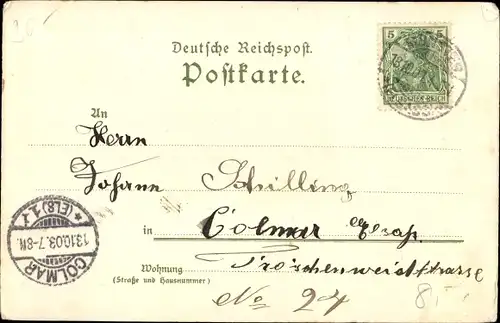 Deutsche Reichspost.
Postkarte.
5 5
DEUTSCHES REICH
An
Herrn
Johann Schilling
in Colmar Elsaß.
Wohnung
(Straße und Hausnummer)
No 27
COLMAR
13.10.03.7-8N.
* (ELS) 1 *
8,-